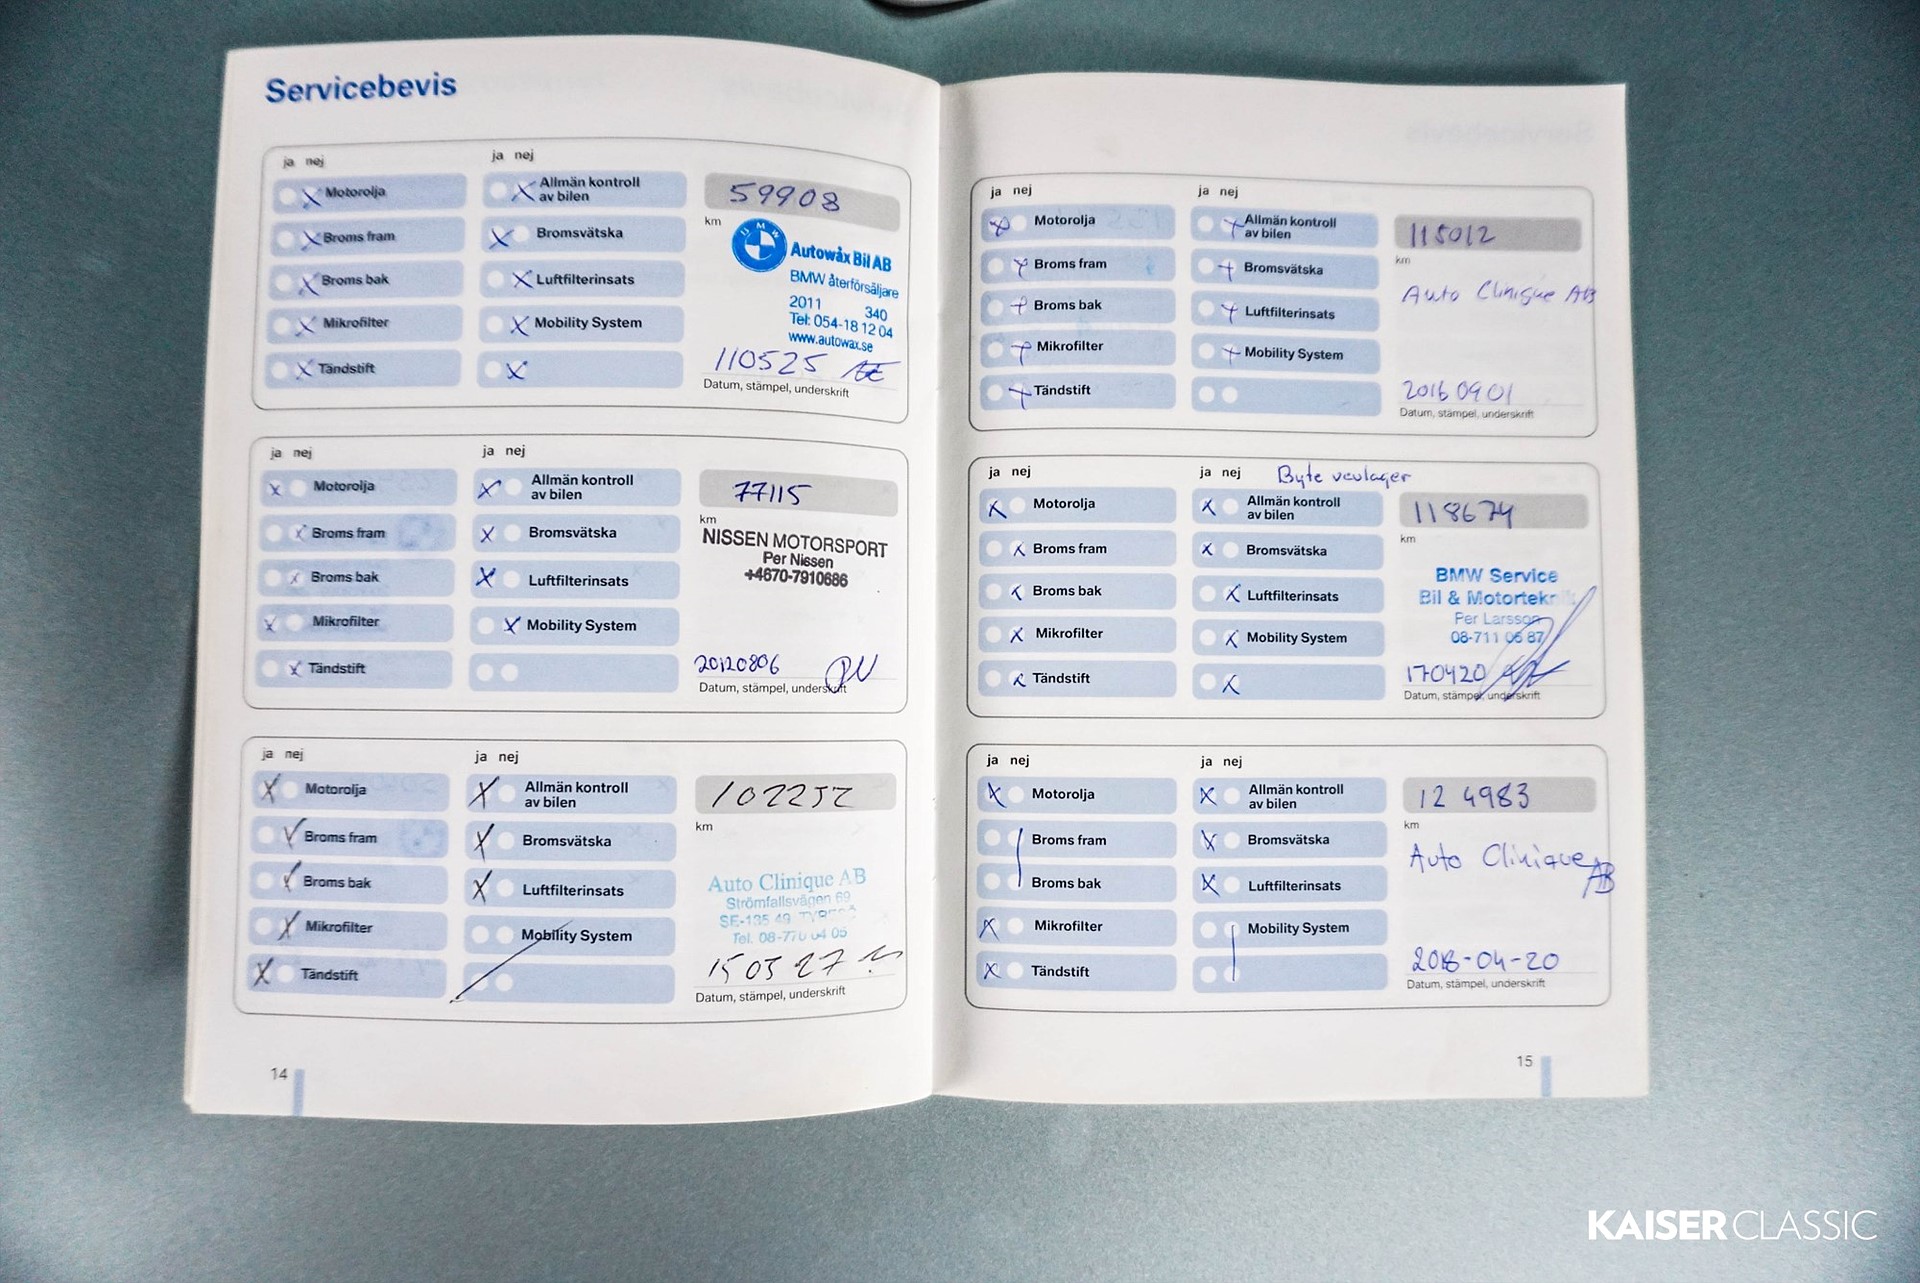 Servicebevis
ja nej
Motorolja
Broms fram
Broms bak
Mikrofilter
Tändstift
ja nej
Allmän kontroll
av bilen
Bromsvätska
Luftfilterinsats
Mobility System
59908
km
BMW
Autowåx Bil AB
BMW återförsäljare
2011 340
Tel: 054-18 12 04
www.autowax.se
110525
Datum, stämpel, underskrift
ja nej
Motorolja
Broms fram
Broms bak
Mikrofilter
Tändstift
ja nej
Allmän kontroll
av bilen
Bromsvätska
Luftfilterinsats
Mobility System
77115
km
NISSEN MOTORSPORT
Per Nissen
+4670-7910686
20120806 PN
Datum, stämpel, underskrift
ja nej
Motorolja
Broms fram
Broms bak
Mikrofilter
Tändstift
ja nej
Allmän kontroll
av bilen
Bromsvätska
Luftfilterinsats
Mobility System
102252
km
Auto Clinique AB
Strömfallsvägen 69
SE-135 49 TYRESÖ
Tel. 08-770 04 05
15 03 27
Datum, stämpel, underskrift
14
ja nej
Motorolja
Broms fram
Broms bak
Mikrofilter
Tändstift
ja nej
Allmän kontroll
av bilen
Bromsvätska
Luftfilterinsats
Mobility System
115012
km
Auto Clinique AB
20160901
Datum, stämpel, underskrift
ja nej
Motorolja
Broms fram
Broms bak
Mikrofilter
Tändstift
ja nej
Byte vevlager
Allmän kontroll
av bilen
Bromsvätska
Luftfilterinsats
Mobility System
118674
km
BMW Service
Bil & Motorteknik
Per Larsson
08-711 06 87
170420
Datum, stämpel, underskrift
ja nej
Motorolja
Broms fram
Broms bak
Mikrofilter
Tändstift
ja nej
Allmän kontroll
av bilen
Bromsvätska
Luftfilterinsats
Mobility System
124983
km
Auto Clinique
AB
2018-04-20
Datum, stämpel, underskrift
15
KAISER CLASSIC